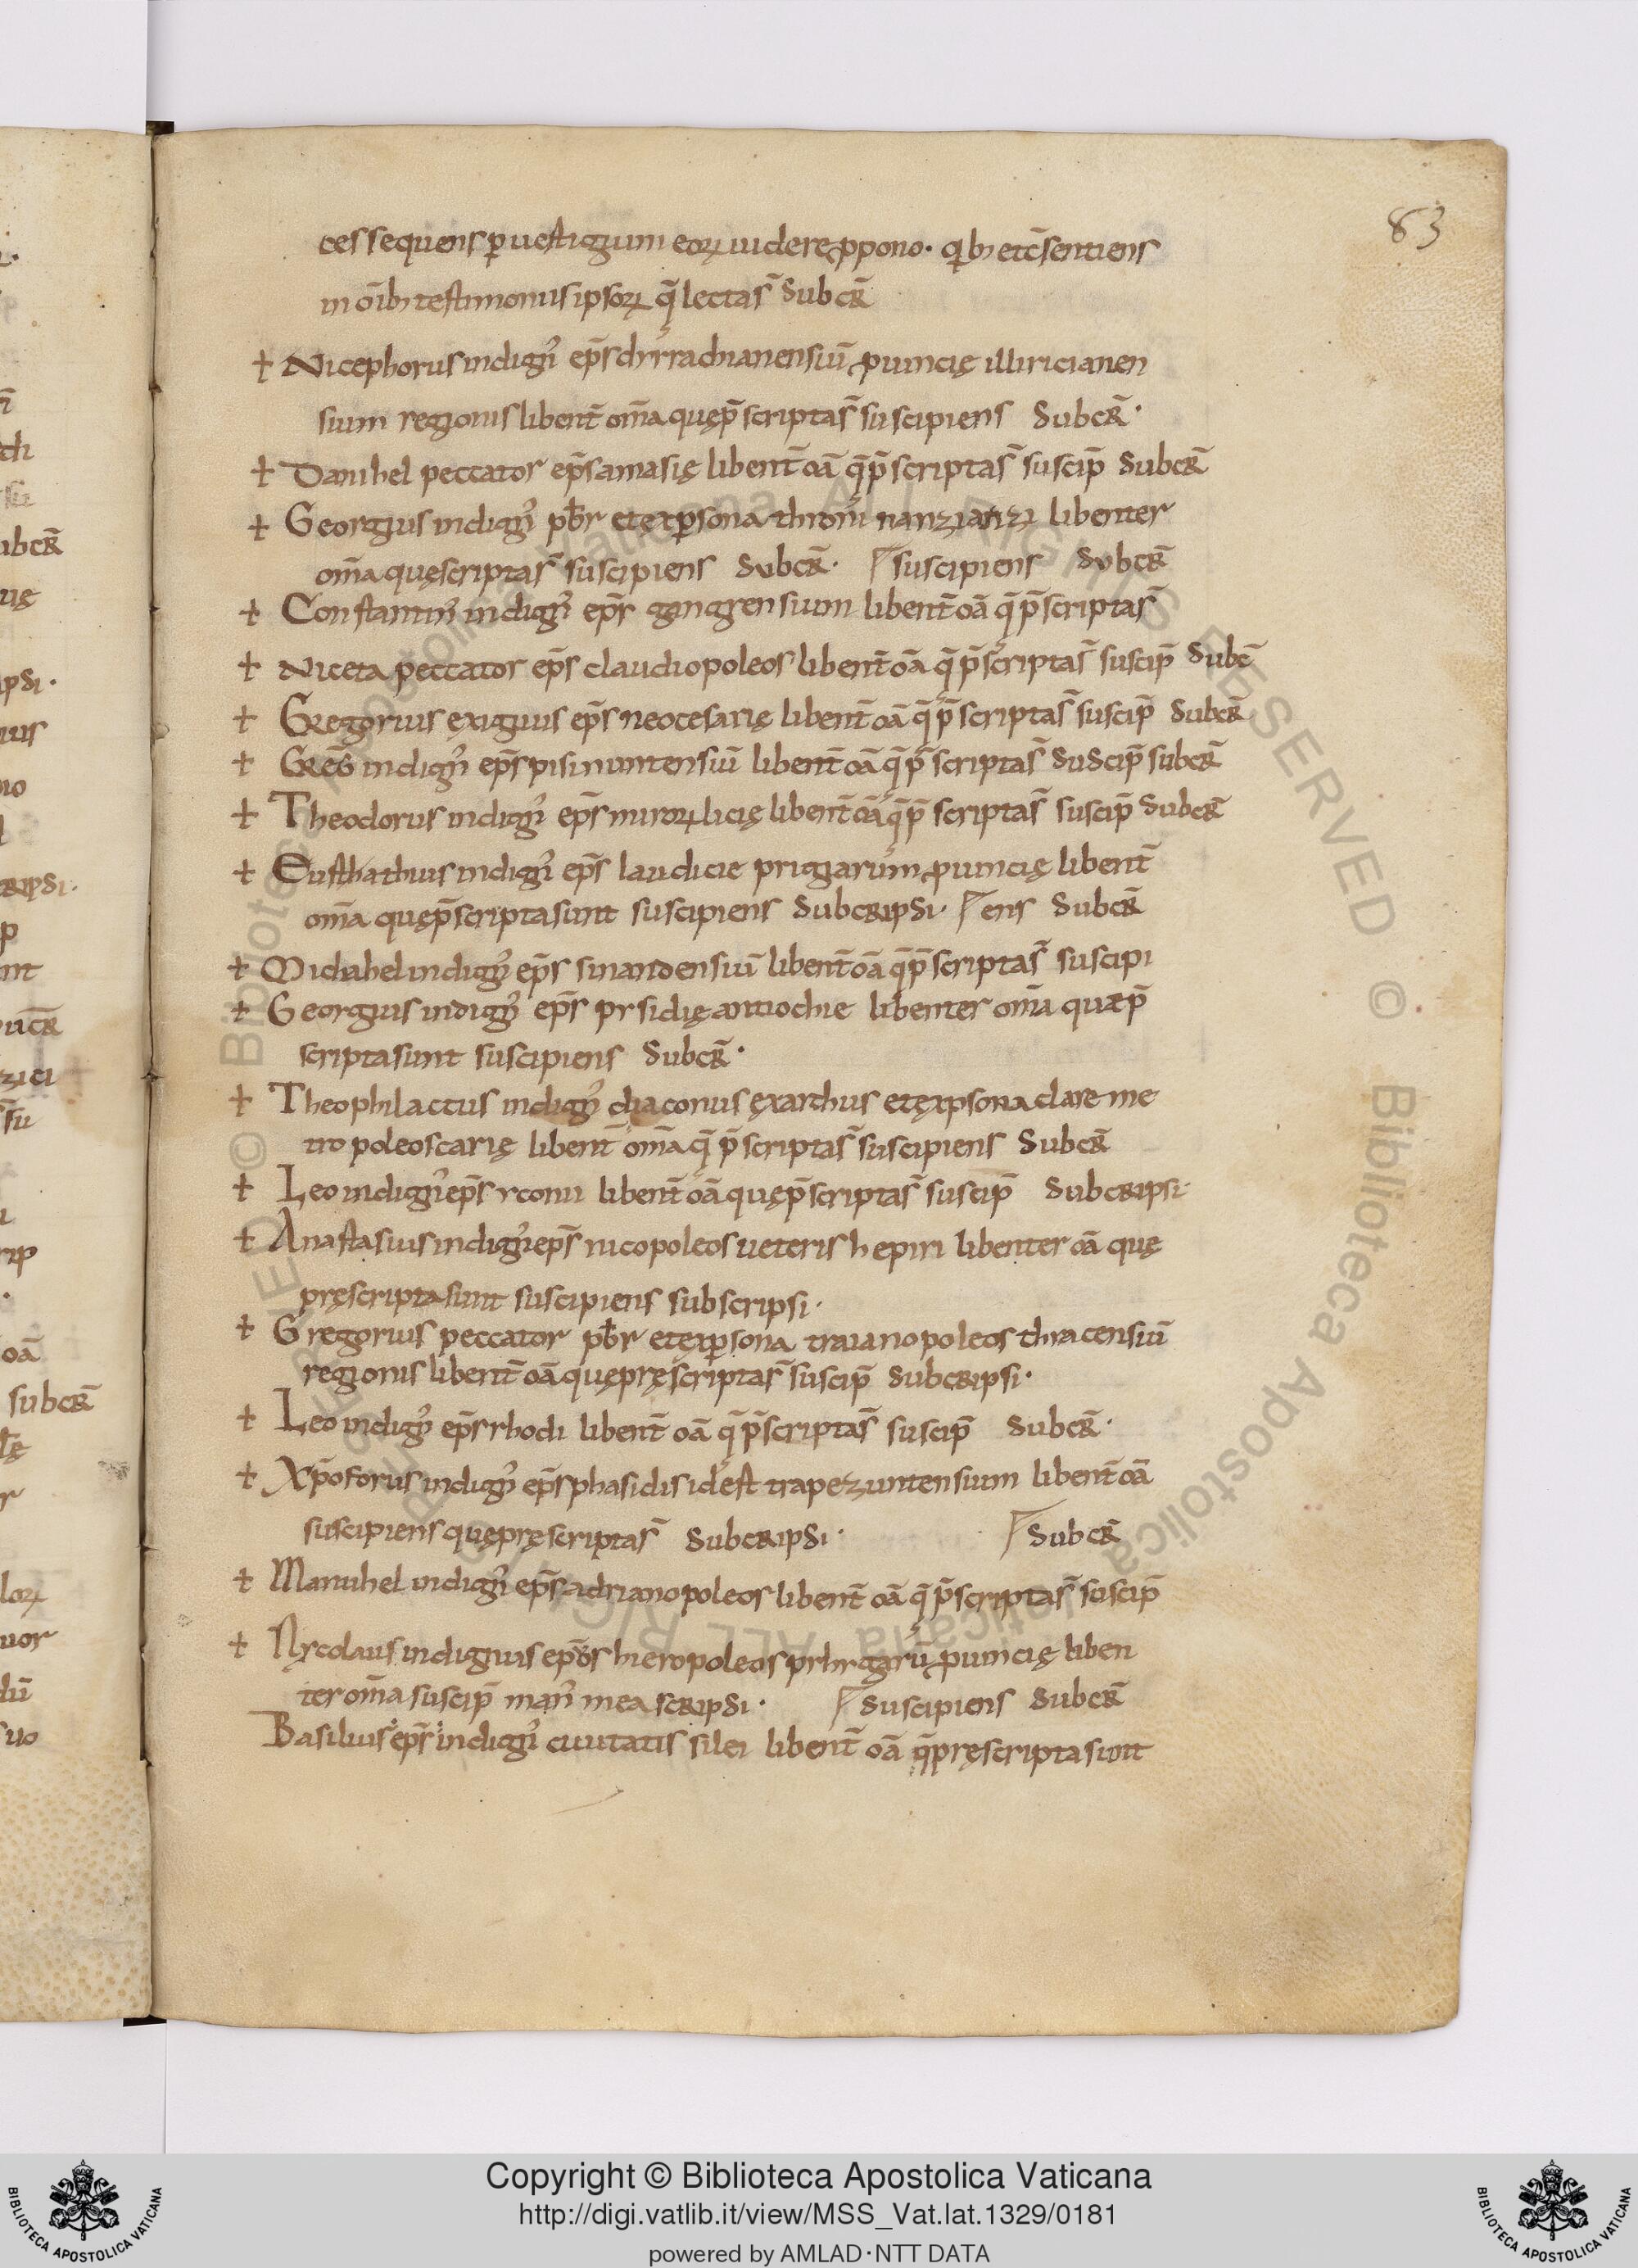 83
ces sequens p̄ uestigium eoꝝ uidere ꝓpono· qb; et c̄sentiens
in oīb; testimoniis ipsoꝝ q̄ lecta s̄ Subcr̄
+ Nicephorus indign᾿ ep̄s dyrrachianensiū ꝓuincię illiricianen
sium regionis libent̄ om̄a quę p̄scripta s̄ suscipiens Subcr̄·
+ Danihel peccator ep̄s amasię libent̄ oā q̄ p̄scripta s̄ suscip̄ Subcr̄
+ Georgius indign᾿ pb̄r et ex ꝑsona throni nanzianzi libenter
om̄a quę scripta s̄ suscipiens Subcr̄· Γ suscipiens Subcr̄
+ Constantin᾿ indign᾿ ep̄s gangrensium libent̄ oā q̄ p̄scripta s̄
+ Niceta peccator ep̄s claudiopoleos libent̄ oā q̄ p̄scripta s̄ suscip̄ Subc̄
+ Gregorius exiguus ep̄s neocesarię libent̄ oā q̄ p̄scripta s̄ suscip̄ Subcr̄
+ Greḡ indign᾿ ep̄s pisinuntensiū libent̄ oā q̄ p̄ scripta s̄ Suscip̄ subcr̄
+ Theodorus indign᾿ ep̄s miroꝝ licię libent̄ oā q̄ p̄ scripta s̄ suscip̄ Subcr̄
+ Eusthathius indign᾿ ep̄s laudicie prigiarum ꝓuincię libent̄
om̄a quę p̄scripta sunt suscipiens Subcripsi· Γ ens Subcr̄
+ Michahel indign᾿ ep̄s sinandensiū libent̄ oā q̄ p̄scripta s̄ suscipi
+ Georgius indign᾿ ep̄s prsidię antiochie libenter om̄a quæ p̄
scripta sunt suscipiens Subcr̄·
+ Theophilactus indign᾿ diaconus exarthus et ex psona clare me
tropoleos carię libent̄ om̄a q̄ p̄scripta s̄ suscipiens Subcr̄
+ Leo indign᾿ ep̄s yconii libent̄ oā quę p̄scripta s̄ suscip̄ Subcripsi·
+ Anastasius indign᾿ ep̄s nicopoleos ueteris hepiri libenter oā quę
pręscripta sunt suscipiens subscripsi·
+ Gregorius peccator pb̄r et ex ꝑsona traianopoleos thracensiū
regionis libent̄ oā quę pręscripta s̄ suscip̄ Subcripsi·
+ Leo indign᾿ ep̄s rhodi libent̄ oā q̄ p̄scripta s̄ suscip̄ Subcr̄·
+ Xp̄oforus indign᾿ ep̄s phasidis id est trapezuntensium libent̄ oā
suscipiens quę pręscripta s̄ Subcripsi· Γ Subcr̄
+ Manuhel indign᾿ ep̄s adrianopoleos libent̄ oā q̄ p̄scripta s̄ suscip̄
+ Nycolaus indignus hieropoleos prhrgarū ꝓuincię liben
ter om̄a suscip̄ man᾿ mea scripsi· Γ Suscipiens Subcr̄
Basilius ep̄s indign᾿ ciuitatis silei libent̄ oā q̄ pręscripta sunt
Copyright © Biblioteca Apostolica Vaticana
http://digi.vatlib.it/view/MSS_Vat.lat.1329/0181
powered by AMLAD·NTT DATA
BIBLIOTECA APOSTOLICA VATICANA
BIBLIOTECA APOSTOLICA VATICANA